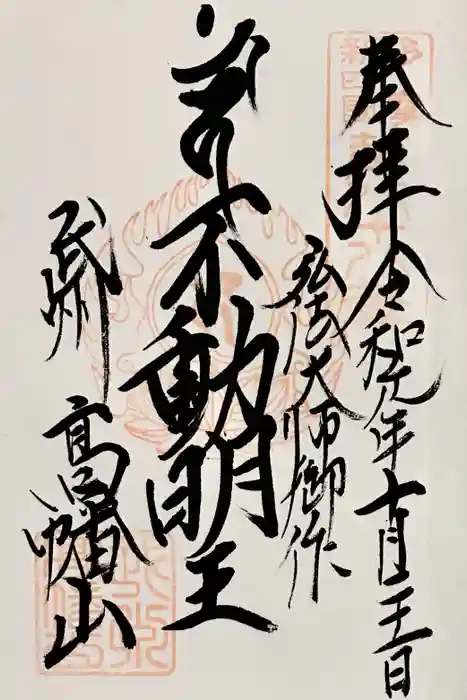 奉拝
令和元年十月日
弘法大師御作
不動明王
武州
高幡山